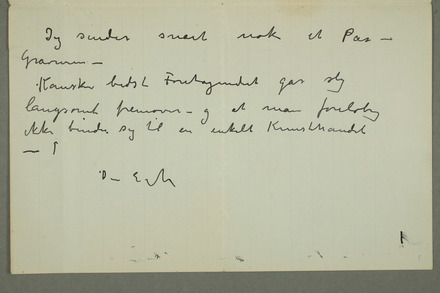 Jeg sender snart nok et Par –
Grammer –
Kanske bedst Foretagendet gaar sig
langsomt fremover – og at man foreløbig
ikke binder sig til en enkelt Kunsthandel
— 
Din E M